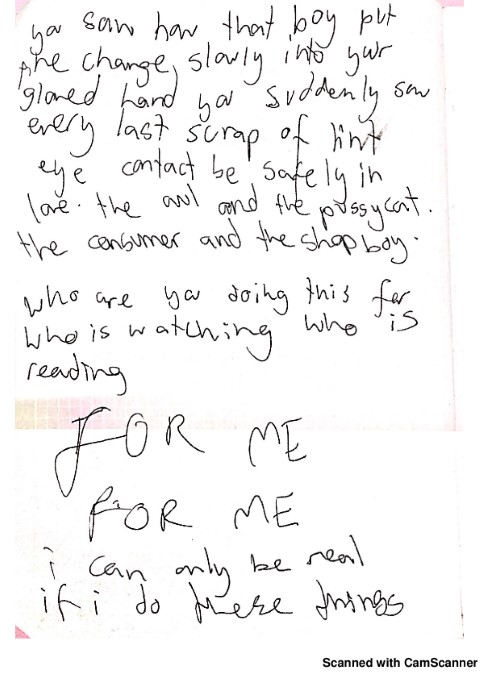 you saw how that boy put
the change, slowly into your
gloved hand you suddenly saw
every last scrap of lint
eye contact be safely in
love. the owl and the pussycat.
the consumer and the shopboy.
who are you doing this for
who is watching who is
reading
FOR ME
FOR ME
i can only be real
if i do these things
Scanned with CamScanner